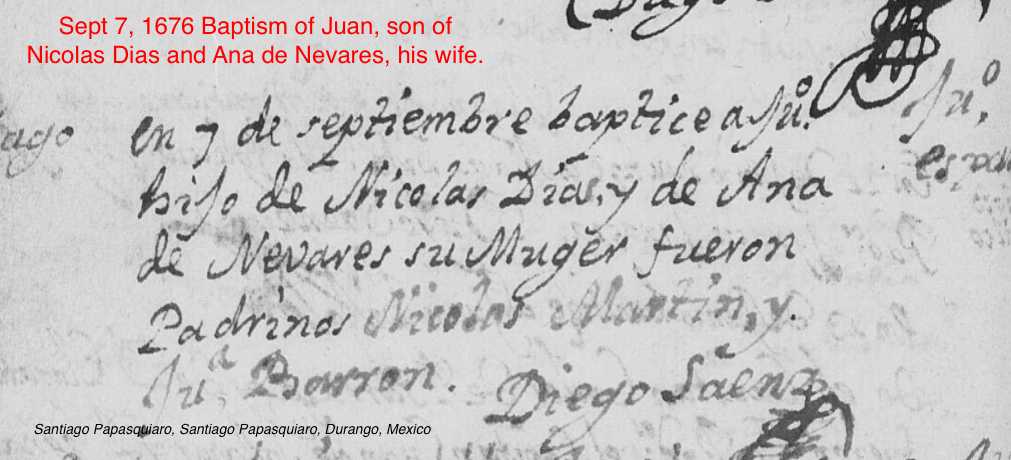 Sept 7, 1676 Baptism of Juan, son of
Nicolas Dias and Ana de Nevares, his wife.
Juº.
ago
en 7 de septiembre baptice a Juº.
hijo de Nicolas Dias, y de Ana
de Nevares su Muger fueron
Padrinos Nicolas Martin, y.
Juª. Barron. Diego Saenz
Santiago Papasquiaro, Santiago Papasquiaro, Durango, Mexico